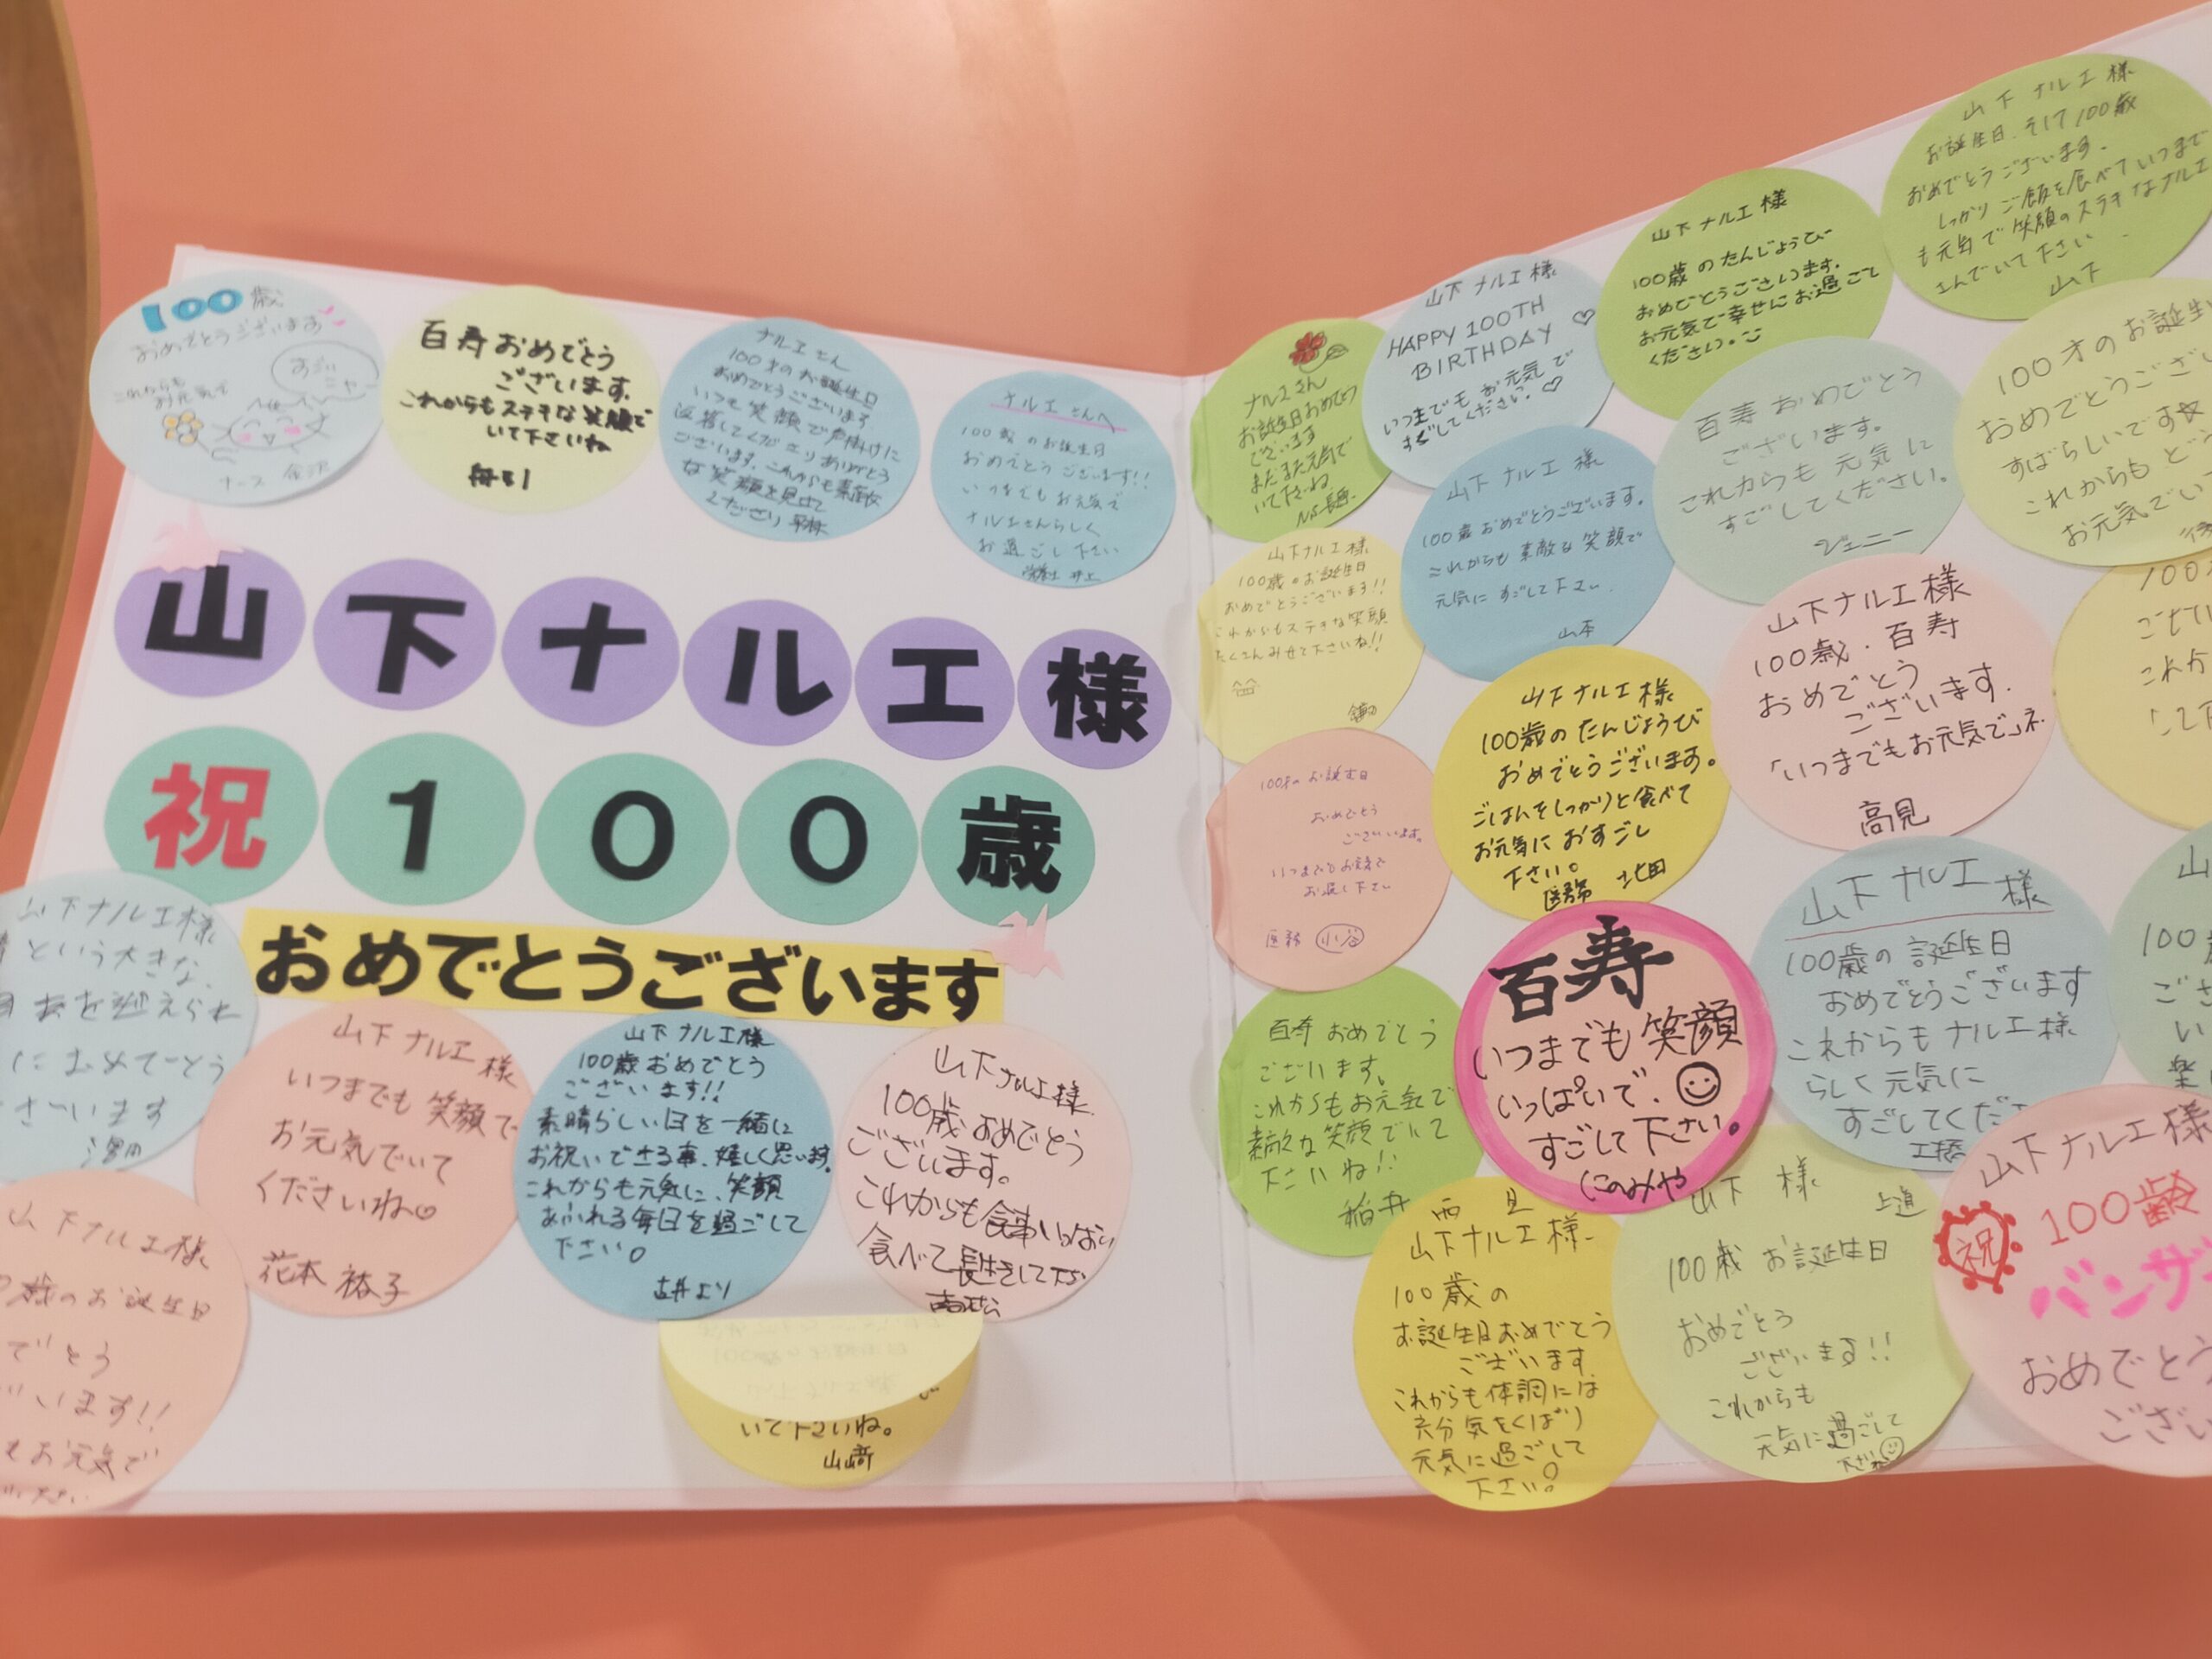 100歳
おめでとうございます
これからも
お元気で
ナース 金沢
百寿おめでとう
ございます。
これからもステキな笑顔で
いて下さいね
ナルエさん
100才のお誕生日
おめでとうございます
いつも笑顔で声掛けに
返答してくださりありがとう
ございます。これからも素敵
な笑顔を見せて
ください
ナルエさんへ
100歳のお誕生日
おめでとうございます!!
いつまでもお元気で
ナルエさんらしく
お過ごし下さい
山下ナルエ様
祝100歳
おめでとうございます
山下ナルエ様
という大きな
を迎えられ
におめでとう
ございます
山下ナルエ様
いつまでも笑顔で
お元気でいて
くださいね
花本 祐子
山下ナルエ様
100歳おめでとう
ございます!!
素晴らしい日を一緒に
お祝いできる事、嬉しく思います。
これからも元気に、笑顔
あふれる毎日を過ごして
下さい。
古井より
山下ナルエ様
100歳おめでとう
ございます。
これからも食事いっぱい
食べて長生きして下さい
山下ナルエ様
歳のお誕生日
でとう
います!!
もお元気で
いて下さいね。
山﨑
ナルエさん
お誕生日おめでとう
ございます
まだまだ元気で
いて下さいね
NS長田
山下ナルエ様
HAPPY 100TH
BIRTHDAY
いつまでもお元気で
すごしてください。
山下ナルエ様
100歳のたんじょうび
おめでとうございます。
お元気で幸せにお過ごし
ください。
山下ナルエ様
お誕生日、そして100歳
おめでとうございます。
しっかりご飯を食べていつまで
も元気で笑顔のステキなナルエ
さんでいて下さい
山下
山下ナルエ様
100歳のお誕生日
おめでとうございます!!
これからもステキな笑顔
たくさんみせて下さいね!!
山下ナルエ様
100歳おめでとうございます。
これからも素敵な笑顔で
元気にすごして下さい。
山本
百寿おめでとう
ございます。
これからも元気に
すごしてください。
ジェニー
100才のお誕生
おめでとうござい
すばらしいです
これからもど
お元気でい
100才のお誕生日
おめでとう
ございます。
いつまでもお元気で
お過し下さい
医務 小谷
山下ナルエ様
100歳のたんじょうび
おめでとうございます。
ごはんをしっかりと食べて
お元気におすごし
下さい。
医務 北田
山下ナルエ様
100歳、百寿
おめでとう
ございます。
「いつまでもお元気で」ネ
高見
100
ござい
これか
百寿おめでとう
ございます。
これからもお元気で
素敵な笑顔でいて
下さいね!!
稲井
百寿
いつまでも笑顔
いっぱいで、
すごして下さい。
にのみや
山下ナルエ様
100歳の誕生日
おめでとうございます
これからもナルエ様
らしく元気に
すごしてくださ
工橋
山
100
ござ
い
楽
山下ナルエ様
100歳の
お誕生日おめでとう
ございます
これからも体調には
充分気をくばり
元気に過ごして
下さい。
山下 様
上道
100歳お誕生日
おめでとう
ございます!!
これからも
元気に過ごして
下さいね
山下ナルエ様
祝 100齢
バンザ
おめでとう
ござい